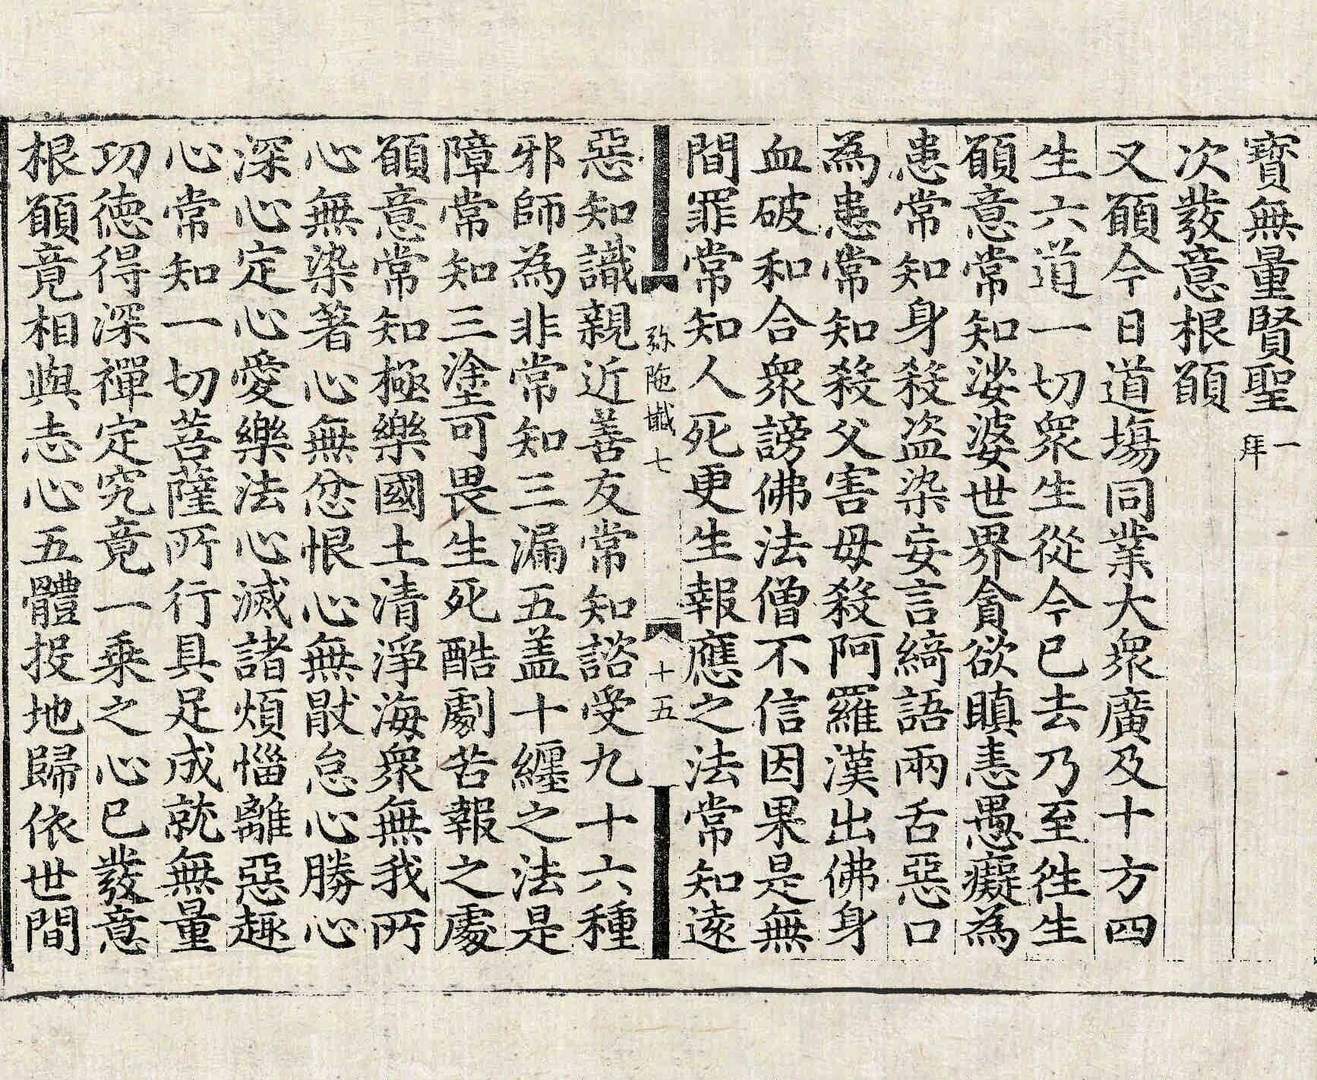 寶無量賢聖一拜
次發意根願
又願今日道場同業大衆廣及十方四
生六道一切衆生從今已去乃至徃生
願意常知娑婆世界貪欲瞋恚愚癡為
患常知身殺盜染妄言綺語兩舌惡口
為患常知殺父害母殺阿羅漢出佛身
血破和合衆謗佛法僧不信因果是無
間罪常知人死更生報應之法常知遠
弥陁懴七
十五
惡知識親近善友常知諮受九十六種
邪師為非常知三漏五盖十纒之法是
障常知三塗可畏生死酷劇苦報之處
願意常知極樂國土清淨海衆無我所
心無染著心無忿恨心無猒怠心勝心
深心定心愛樂法心滅諸煩惱離惡趣
心常知一切菩薩所行具足成就無量
功德得深禪定究竟一乘之心已發意
根願竟相與志心五體投地歸依世間